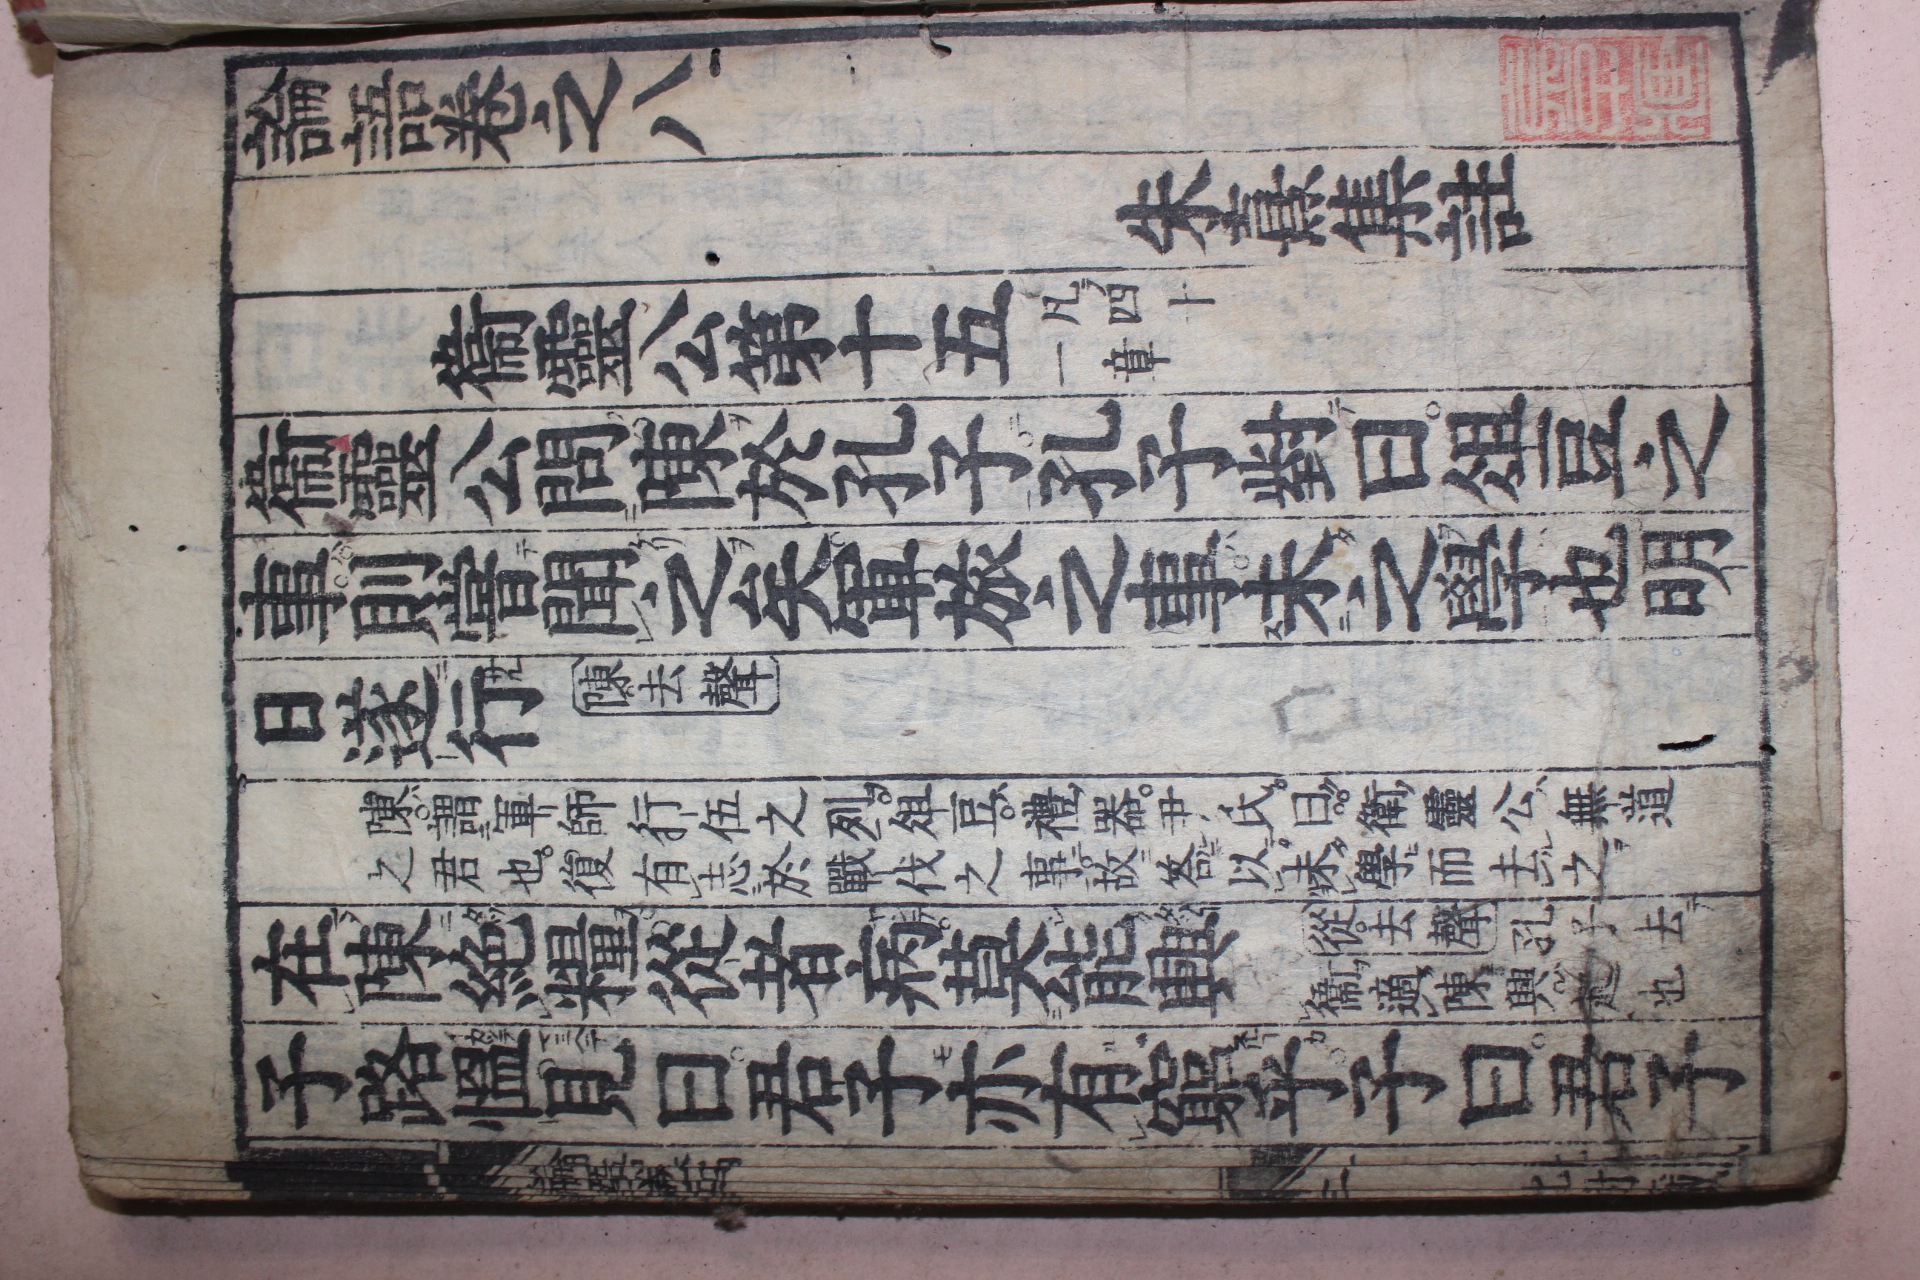 論語卷之八
朱熹集註
衞靈公第十五 凡四十一章
衞靈公問陳於孔子孔子對曰俎豆之
事則嘗聞之矣軍旅之事未之學也明
日遂行 陳去聲
陳謂軍師行伍之列俎豆禮器尹氏曰衞靈公無道
之君也復有志於戰伐之事故答以未學而去之
在陳絕糧從者病莫能興 從去聲孔子去衞適陳興起也
子路慍見曰君子亦有窮乎子曰君子